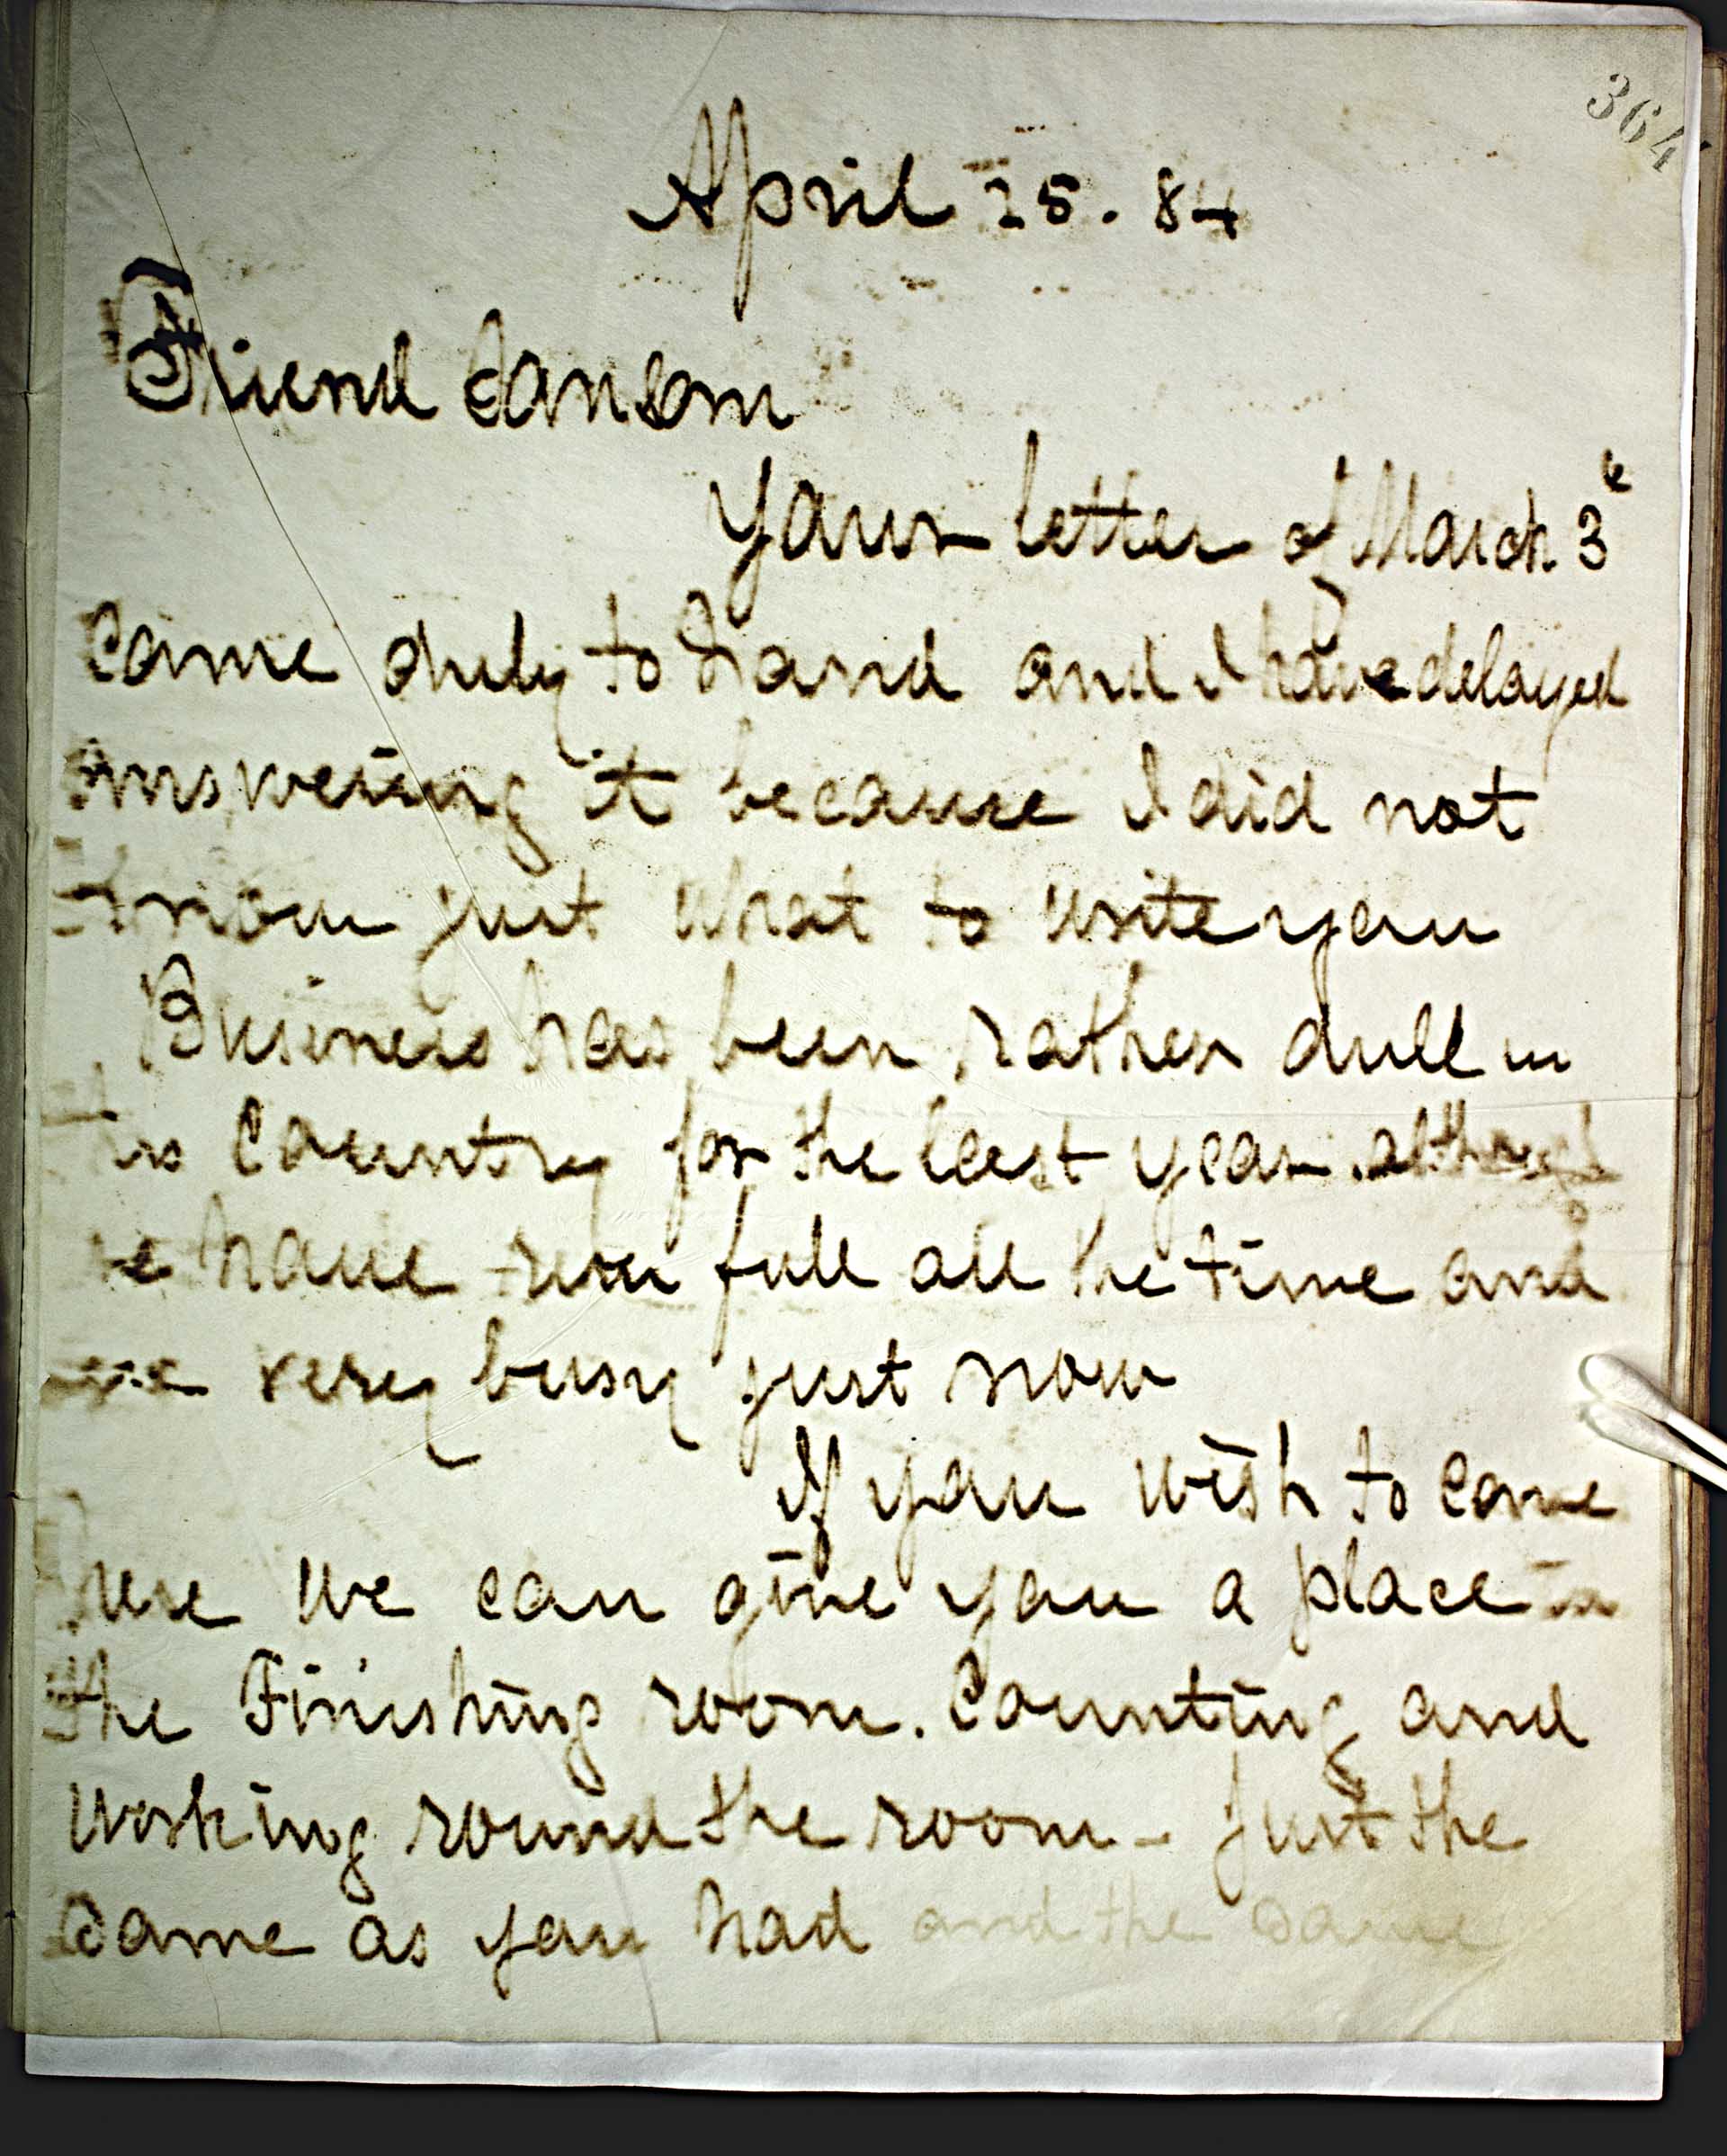 364
April 15. 84
Friend Sansom
Your letter of March 3
came duly to hand and I have delayed
answering it because I did not
know just what to write you
Business has been rather dull in
this Country for the last year although
we have run full all the time and
are very busy just now
If you wish to come
here we can give you a place in
the Finishing room. Counting and
working round the room - Just the
Same as you had and the Same